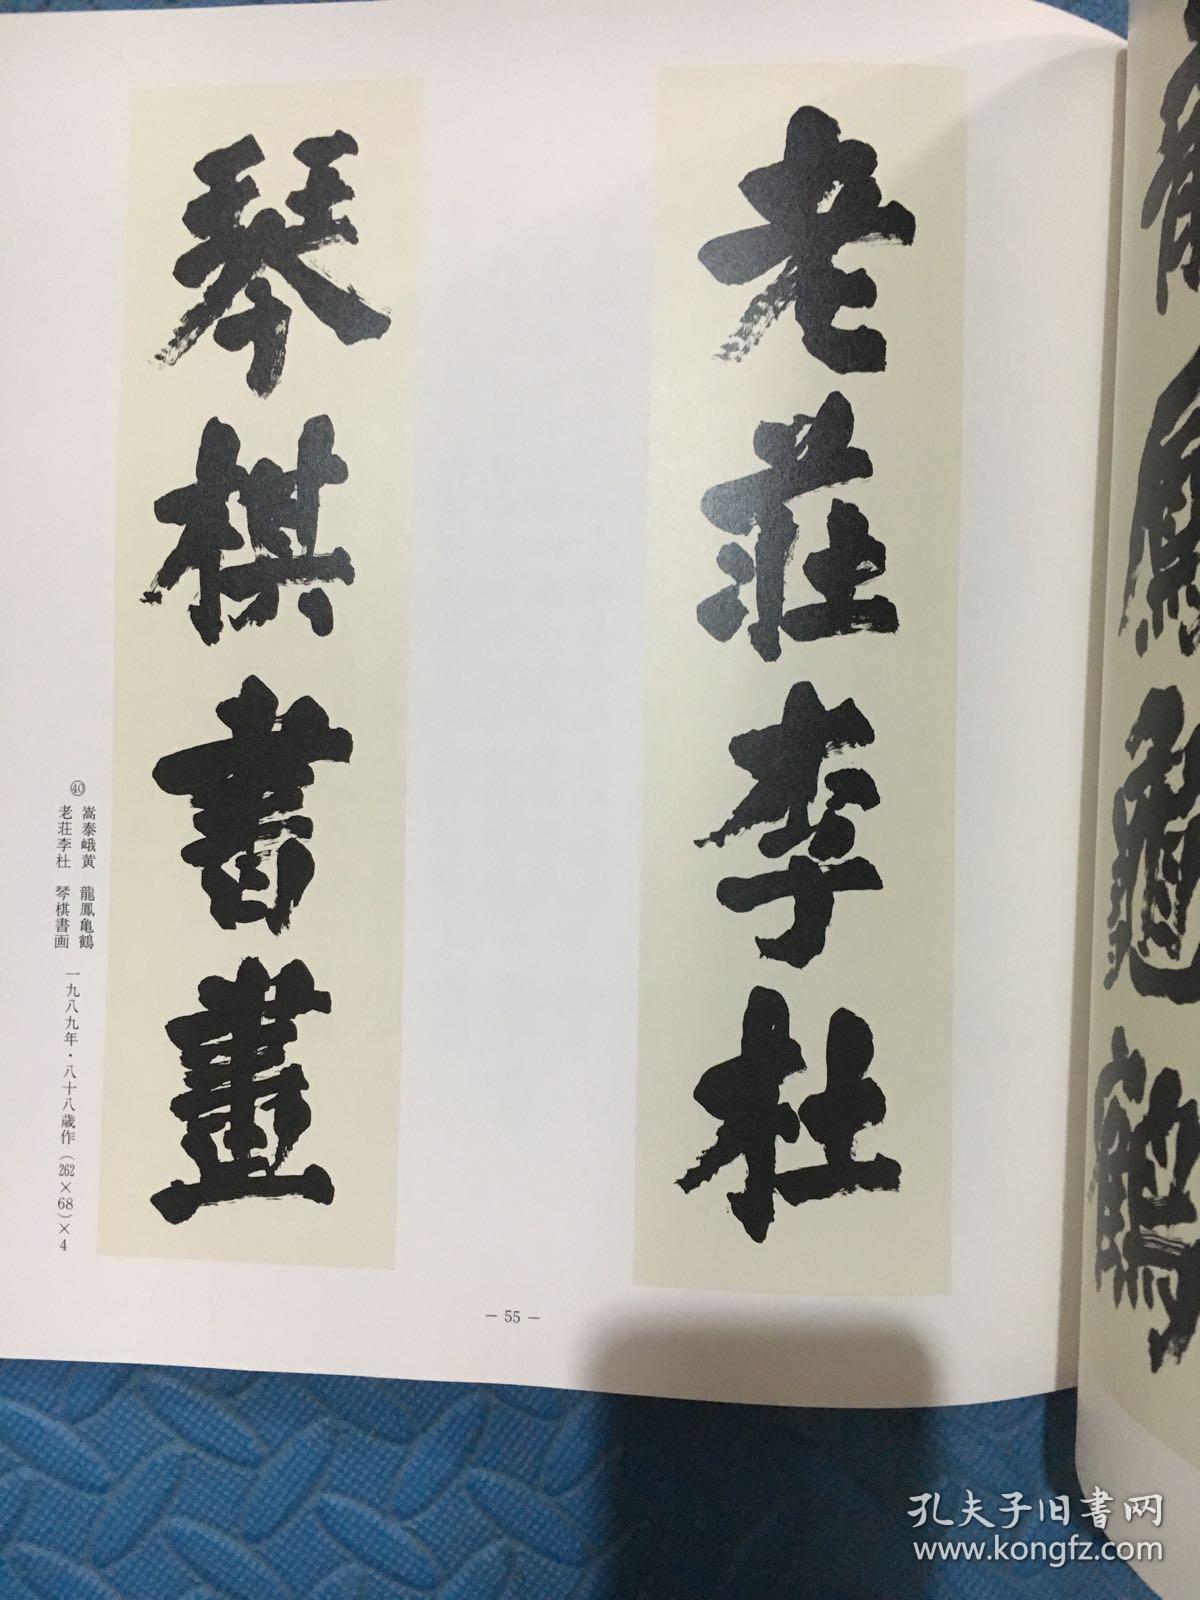 老莊李杜
琴棋書畫
龍鳳龜鶴
㊵ 嵩泰峨黄 龍鳳亀鶴
老荘李杜 琴棋書画 一九八九年・八十八歳作(262×68)×4
— 55 —
孔夫子旧书网
www.kongfz.com